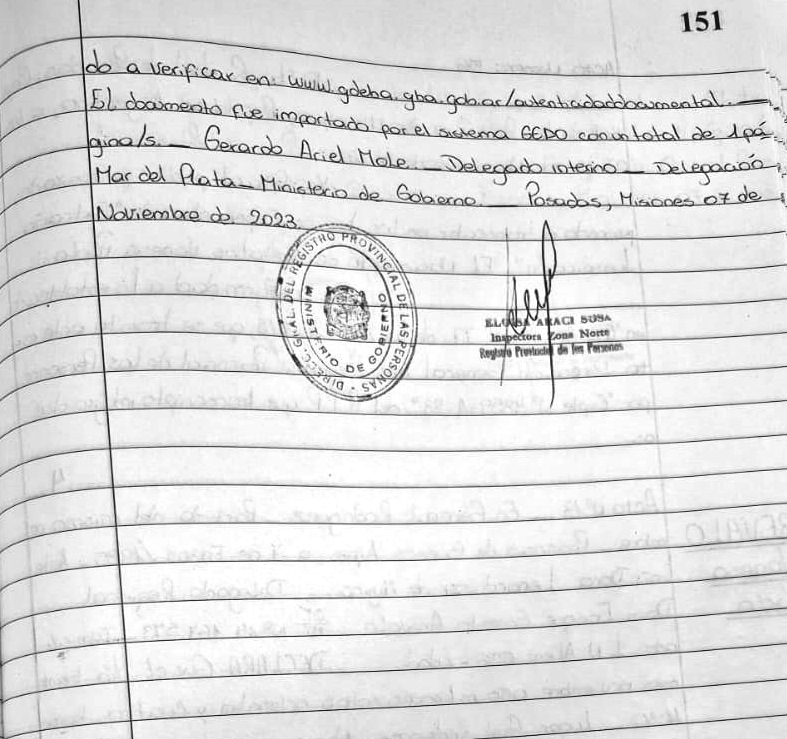 151
do a verificar en: www.gdeba.gba.gob.ar/autenticidaddocumental. —
El documento fue importado por el sistema GEDO con un total de 1 pá
gina/s. — Gerardo Ariel Mole — Delegado interino — Delegación
Mar del Plata — Ministerio de Gobierno — Posadas, Misiones 07 de
Noviembre de 2023.
DIRECC. GRAL. DEL REGISTRO PROVINCIAL DE LAS PERSONAS
MINISTERIO DE GOBIERNO
ELOISA ARACI SUSA
Inspectora Zona Norte
Registro Provincial de las Personas